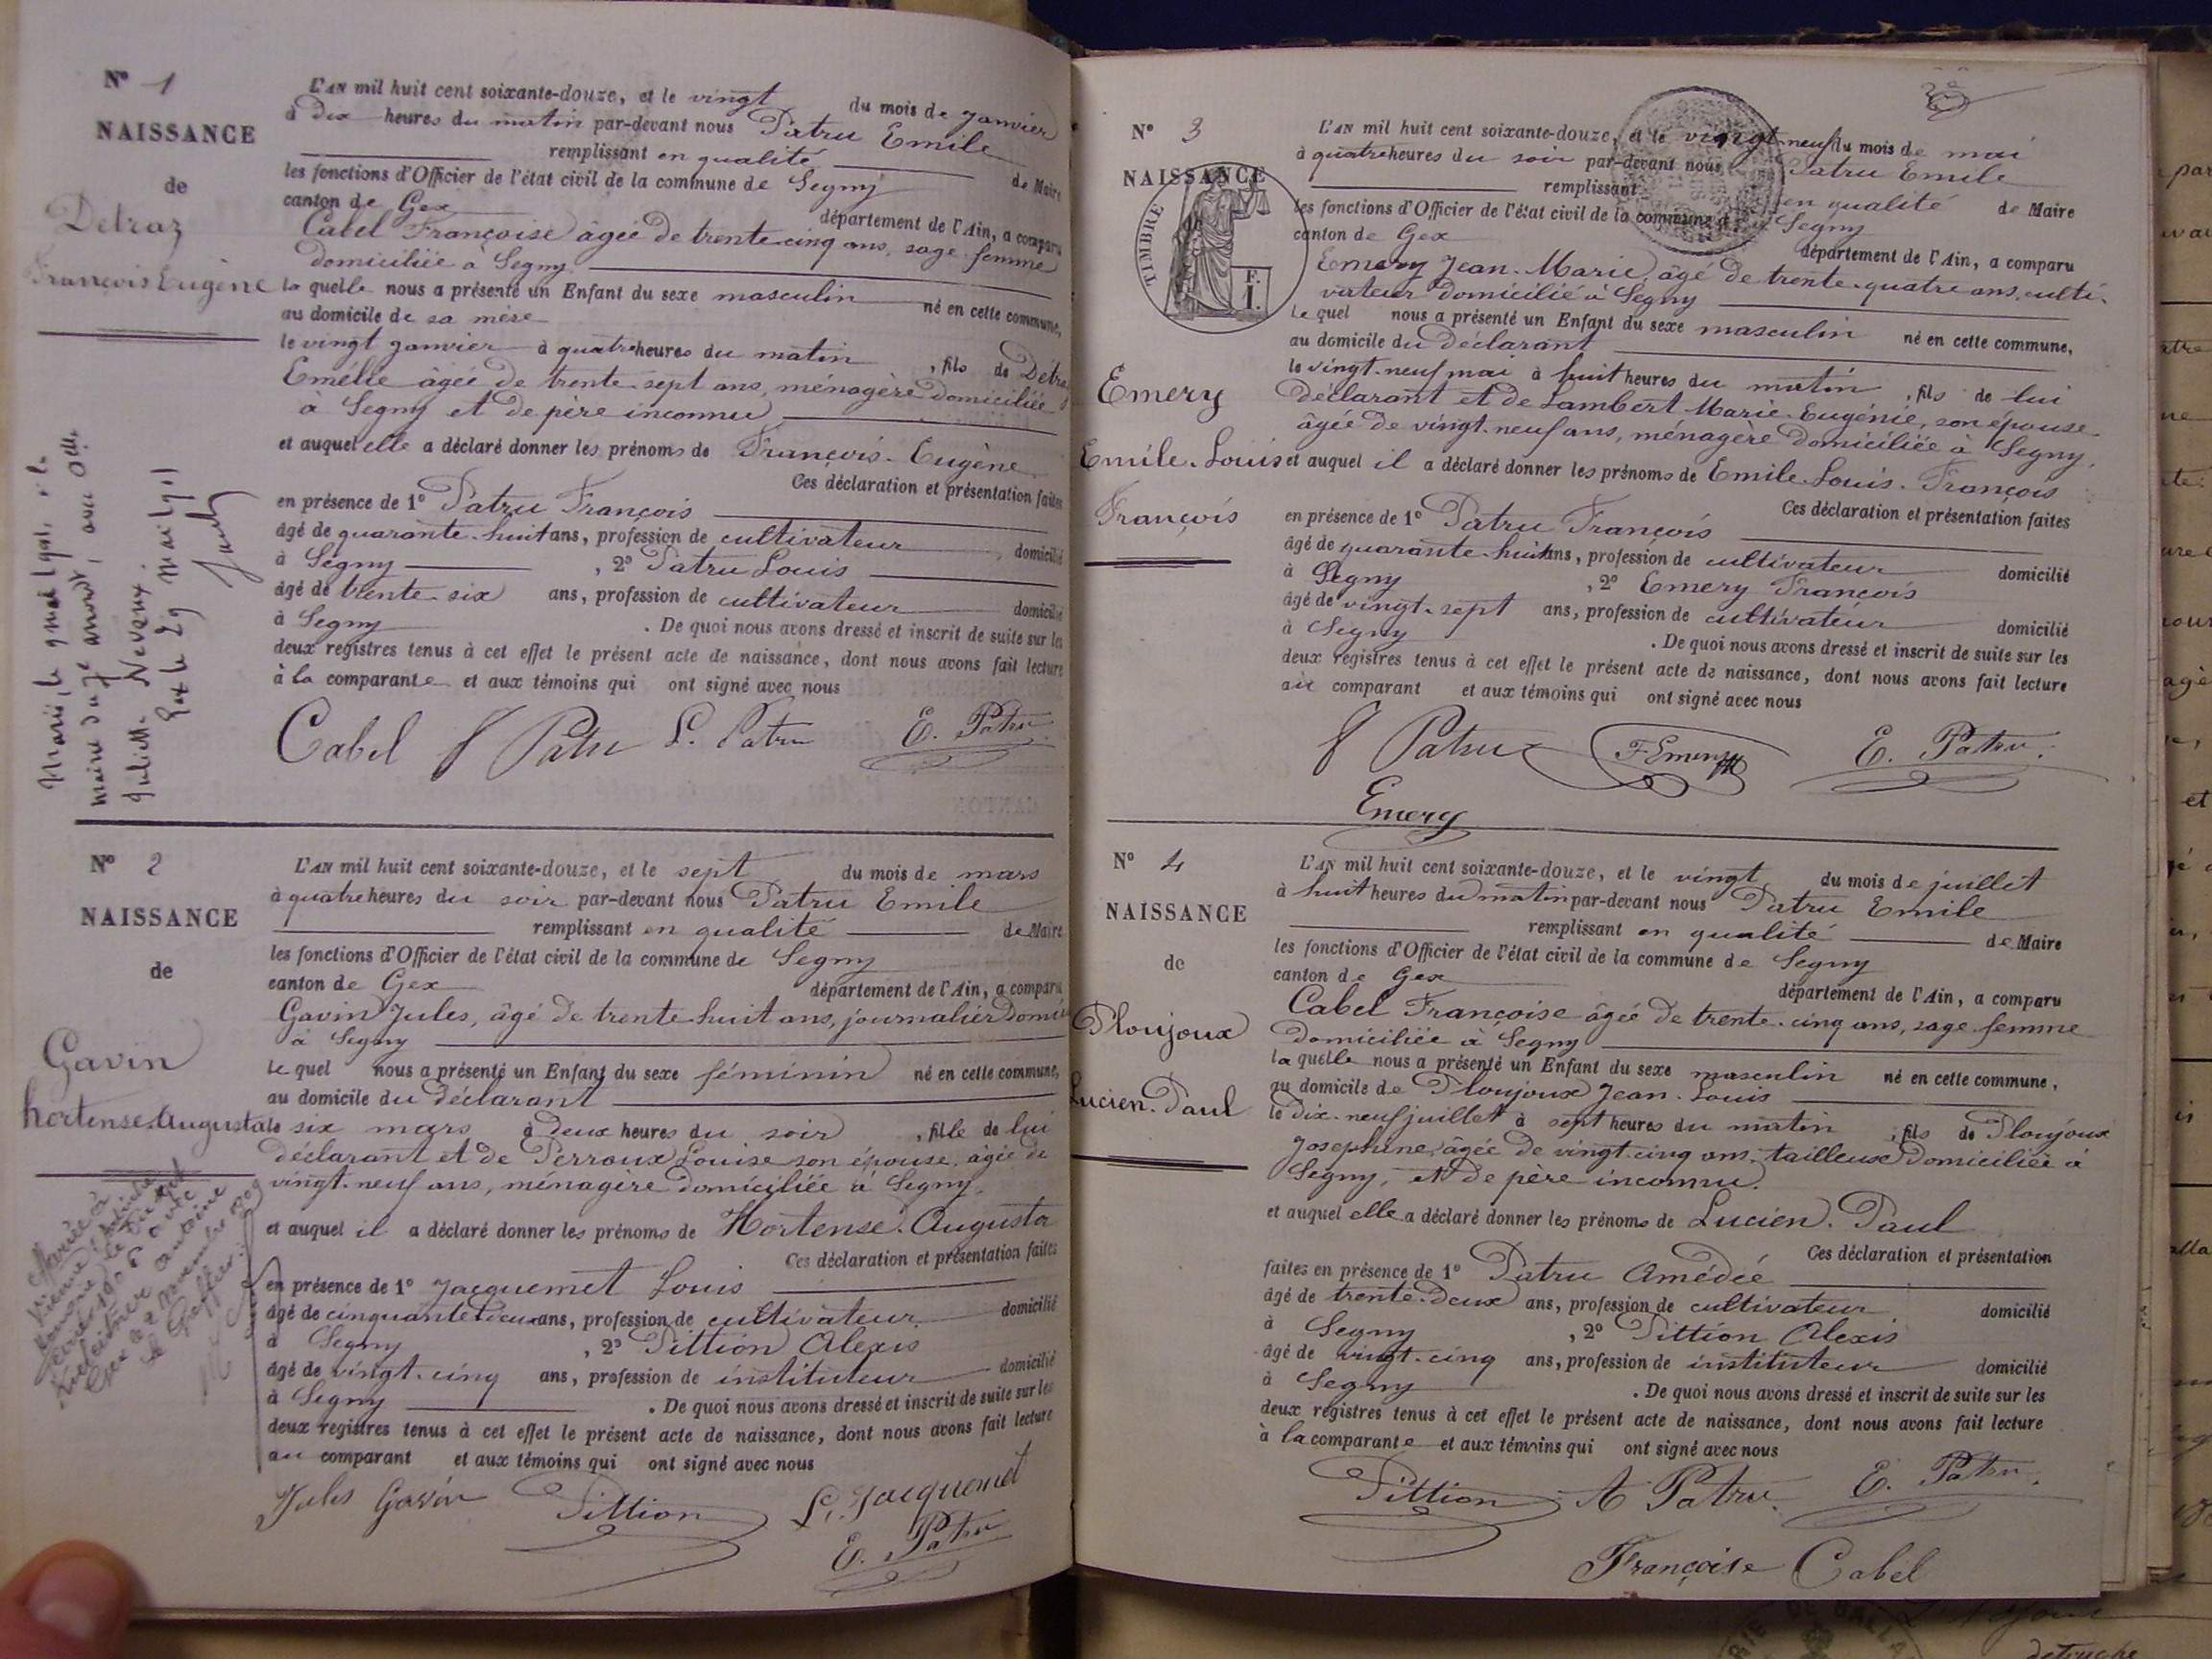 N° 1
NAISSANCE
de
Detraz
François Eugène
L'AN mil huit cent soixante-douze, et le vingt du mois de janvier
à Dix heures du matin par-devant nous Patru Emile
remplissant en qualité de Maire
les fonctions d'Officier de l'état civil de la commune de Segny
canton de Gex département de l'Ain, a comparu
Cabel Françoise âgée de trente-cinq ans, sage femme
domiciliée à Segny
la quelle nous a présenté un Enfant du sexe masculin né en cette commune,
au domicile de sa mère
le vingt janvier à quatre heures du matin, fils de Détra
Emélie âgée de trente-sept ans, ménagère domiciliée
à Segny et de père inconnu
et auquel elle a déclaré donner les prénoms de François-Eugène
Ces déclaration et présentation faites
en présence de 1° Patru François
âgé de quarante-huit ans, profession de cultivateur domicilié
à Segny, 2° Patru Louis
âgé de trente-six ans, profession de cultivateur domicilié
à Segny. De quoi nous avons dressé et inscrit de suite sur les
deux registres tenus à cet effet le présent acte de naissance, dont nous avons fait lecture
à la comparante et aux témoins qui ont signé avec nous
Cabel f Patru L. Patru E. Patru
maire du 7e arrondt, avec Dlle
Juliette Neveux.
Gex le 29 mai 1911
N° 2
NAISSANCE
de
Gavin
hortense-Augusta
L'AN mil huit cent soixante-douze, et le sept du mois de mars
à quatre heures du soir par-devant nous Patru Emile
remplissant en qualité de Maire
les fonctions d'Officier de l'état civil de la commune de Segny
canton de Gex département de l'Ain, a comparu
Gavin Jules, âgé de trente-huit ans, journalier domici
à Segny
le quel nous a présenté un Enfant du sexe féminin né en cette commune,
au domicile du déclarant
le six mars à Deux heures du soir, fille de lui
déclarant et de Perroux Louise son épouse, âgée de
vingt-neuf ans, ménagère domiciliée à Segny,
et auquel il a déclaré donner les prénoms de Hortense-Augusta
Ces déclaration et présentation faites
en présence de 1° Jacquemet Louis
âgé de cinquante deux ans, profession de cultivateur domicilié
à Segny, 2° Pittion Alexis
âgé de vingt-cinq ans, profession de instituteur domicilié
à Segny. De quoi nous avons dressé et inscrit de suite sur les
deux registres tenus à cet effet le présent acte de naissance, dont nous avons fait lecture
au comparant et aux témoins qui ont signé avec nous
Jules Gavin Pittion L. Jacquemet
E. Patru
N° 3
NAISSANCE
de
TIMBRE
F.
1.
Emery
Emile-Louis
François
L'AN mil huit cent soixante-douze, et le vingt-neuf du mois de mai
à quatre heures du soir par-devant nous Patru Emile
remplissant en qualité de Maire
les fonctions d'Officier de l'état civil de la commune de Segny
canton de Gex département de l'Ain, a comparu
Emery Jean-Marie, âgé de trente-quatre ans, culti-
vateur domicilié à Segny
le quel nous a présenté un Enfant du sexe masculin né en cette commune,
au domicile du déclarant
le vingt-neuf mai à huit heures du matin, fils de lui
déclarant et de Lambert Marie-Eugénie, son épouse
âgée de vingt-neuf ans, ménagère domiciliée à Segny,
et auquel il a déclaré donner les prénoms de Emile-Louis-François
Ces déclaration et présentation faites
en présence de 1° Patru François
âgé de quarante-huit ans, profession de cultivateur domicilié
à Segny, 2° Emery François
âgé de vingt-sept ans, profession de cultivateur domicilié
à Segny. De quoi nous avons dressé et inscrit de suite sur les
deux registres tenus à cet effet le présent acte de naissance, dont nous avons fait lecture
au comparant et aux témoins qui ont signé avec nous
f Patru F Emery E. Patru.
Emery
N° 4
NAISSANCE
de
Ploujoux
Lucien-Paul
L'AN mil huit cent soixante-douze, et le vingt du mois de juillet
à huit heures du matin par-devant nous Patru Emile
remplissant en qualité de Maire
les fonctions d'Officier de l'état civil de la commune de Segny
canton de Gex département de l'Ain, a comparu
Cabel Françoise âgée de trente-cinq ans, sage-femme
domiciliée à Segny
la quelle nous a présenté un Enfant du sexe masculin né en cette commune,
au domicile de Ploujoux Jean-Louis
le Dix-neuf juillet à sept heures du matin, fils de Ploujoux
Josephine, âgée de vingt-cinq ans, tailleuse domiciliée à
Segny, et de père inconnu.
et auquel elle a déclaré donner les prénoms de Lucien-Paul
Ces déclaration et présentation
faites en présence de 1° Patru Amédée
âgé de trente-deux ans, profession de cultivateur domicilié
à Segny, 2° Pittion Alexis
âgé de vingt-cinq ans, profession de instituteur domicilié
à Segny. De quoi nous avons dressé et inscrit de suite sur les
deux registres tenus à cet effet le présent acte de naissance, dont nous avons fait lecture
à la comparante et aux témoins qui ont signé avec nous
Pittion A Patru. E. Patru.
Françoise Cabel